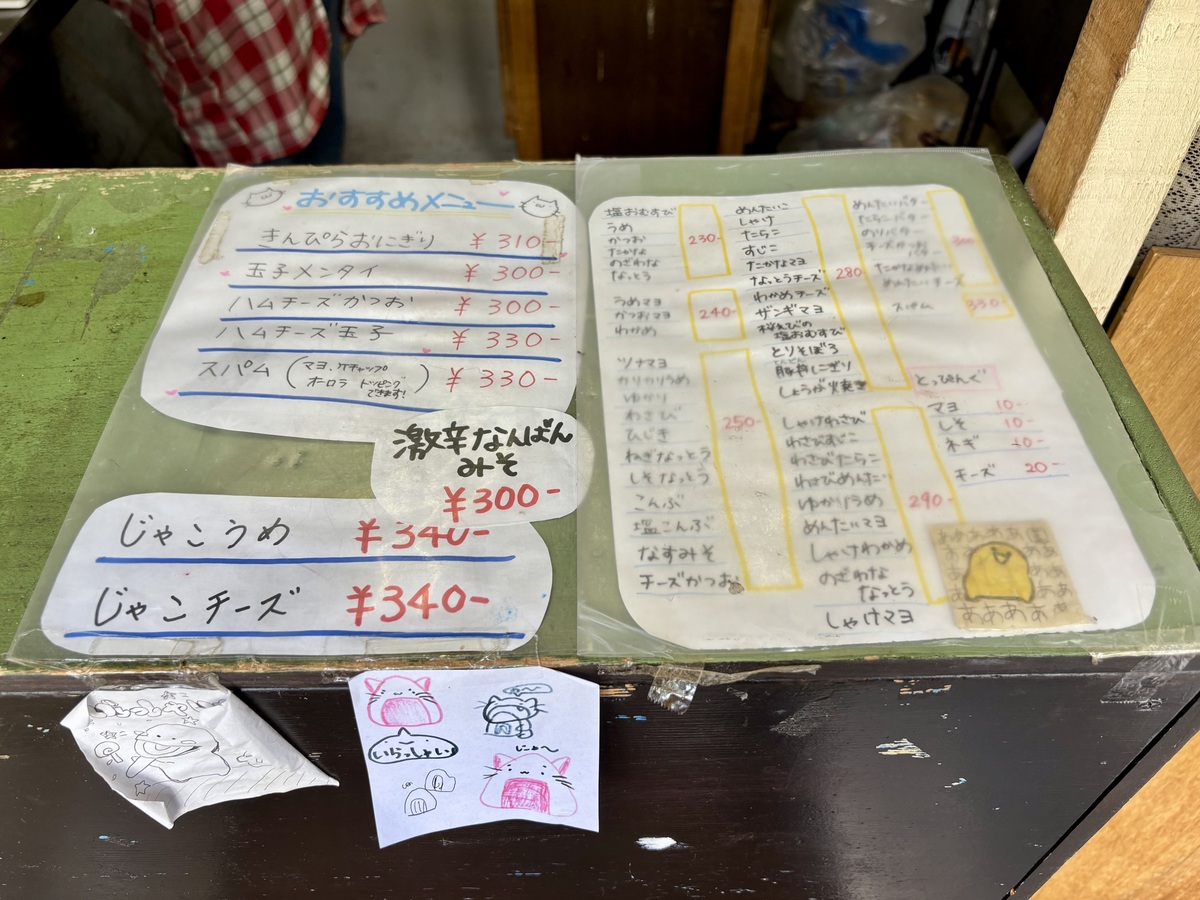 おすすめメニュー
きんぴらおにぎり ¥310-
玉子メンタイ ¥300-
ハムチーズかつお ¥300-
ハムチーズ玉子 ¥330-
スパム (マヨ、ケチャップ ¥330-
オーロラ トッピング
できます!)
激辛なんばん
みそ
¥300-
じゃこうめ ¥340-
じゃこチーズ ¥340-
塩おむすび
うめ
かつお
たかな
のざわな
なっとう
230-
うめマヨ
かつおマヨ
わかめ
240-
ツナマヨ
カリカリうめ
ゆかり
わさび
ひじき
ねぎなっとう
しそなっとう
こんぶ
塩こんぶ
なすみそ
チーズかつお
250-
めんたいこ
しゃけ
たらこ
すじこ
たかなマヨ
なっとうチーズ
わかめチーズ
ザンギマヨ
桜えびの
塩おむすび
とりそぼろ
豚丼にぎり
しょうが火焼き
280
しゃけわさび
わさびすじこ
わさびたらこ
わさびめんたい
ゆかりうめ
めんたいマヨ
しゃけわかめ
のざわな
なっとう
しゃけマヨ
290-
めんたいバター
たらこバター
のりバター
チーズかつお
バター
たかなめんたい
めんたいチーズ
300-
スパム 330-
とっぴんぐ
マヨ 10-
しそ 10-
ネギ 10-
チーズ 20-
いらっしゃい
にゃ〜